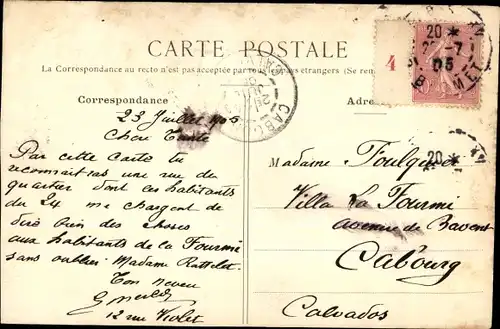 CARTE POSTALE
La Correspondance au recto n'est pas acceptée par tous pays étrangers (Se ren
Correspondance
Adre
4
20 *
-7
05
20 *
CABO
23 Juillet 1905
Cher Tante
Par cette carte tu
reconnaitras une rue du
quartier dont ces habitants
du 24 me chargent de
dire bien des choses
aux habitants de la Fourmi
sans oublier Madame
Ton neveu
12 rue Violet
Madame
Villa La Fourmi
avenue de Bavent
Cabourg
Calvados